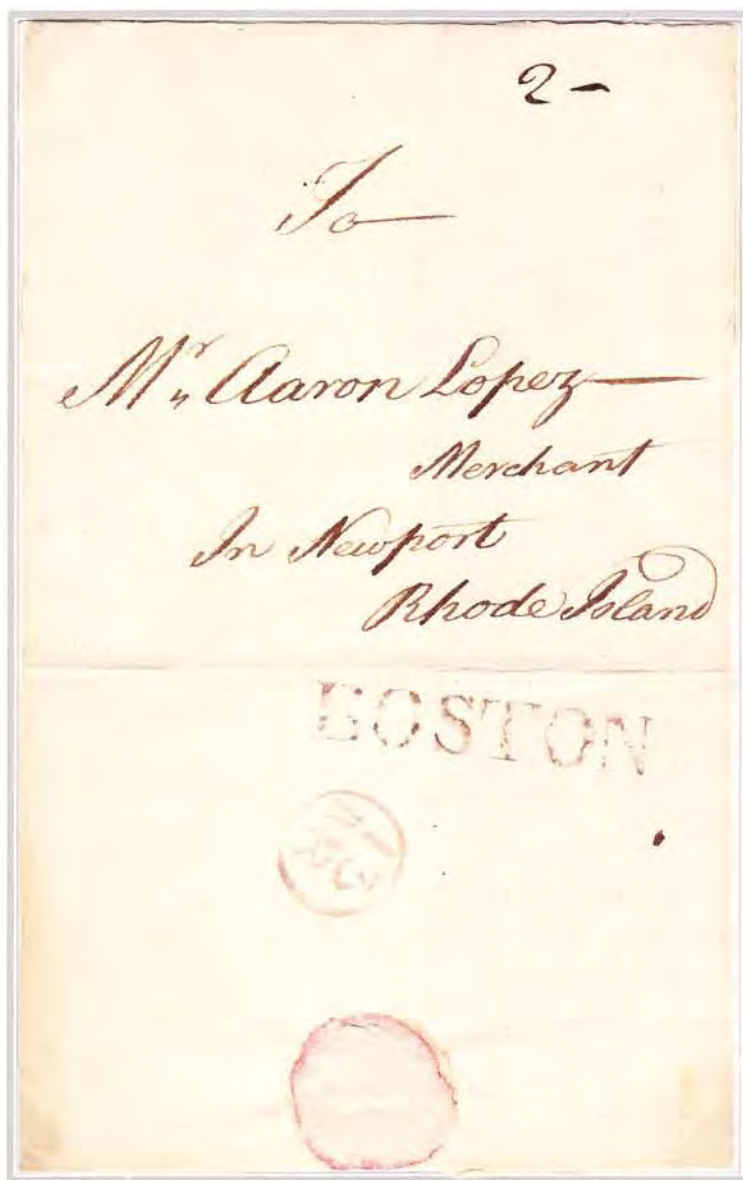 2 —
To —
Mr. Aaron Lopez —
Merchant
In Newport
Rhode Island
BOSTON